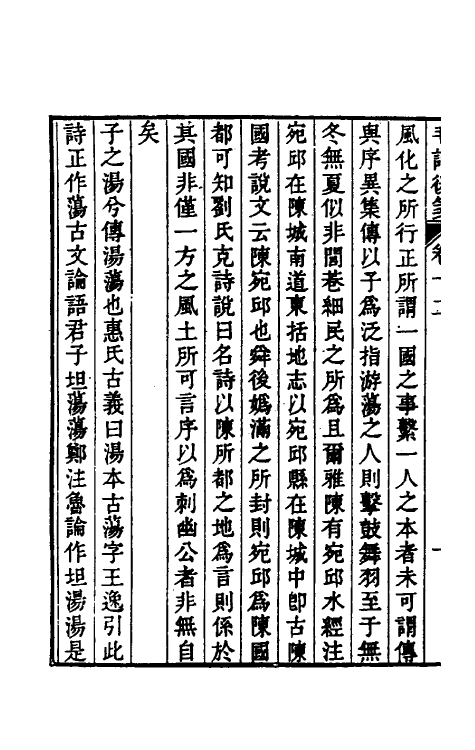 風化之所行正所謂一國之事繫一人之本者未可謂傳
與序異集傳以子爲泛指游蕩之人則擊鼓舞羽至于無
冬無夏似非閭巷細民之所爲且爾雅陳有宛邱水經注
宛邱在陳城南道東括地志以宛邱縣在陳城中卽古陳
國考說文云陳宛邱也舜後嬀滿之所封則宛邱爲陳國
都可知劉氏克詩說曰名詩以陳所都之地爲言則係於
其國非僅一方之風土所可言序以爲刺幽公者非無自
矣
子之湯兮傳湯蕩也惠氏古義曰湯本古蕩字王逸引此
詩正作蕩古文論語君子坦蕩蕩鄭注魯論作坦湯湯是